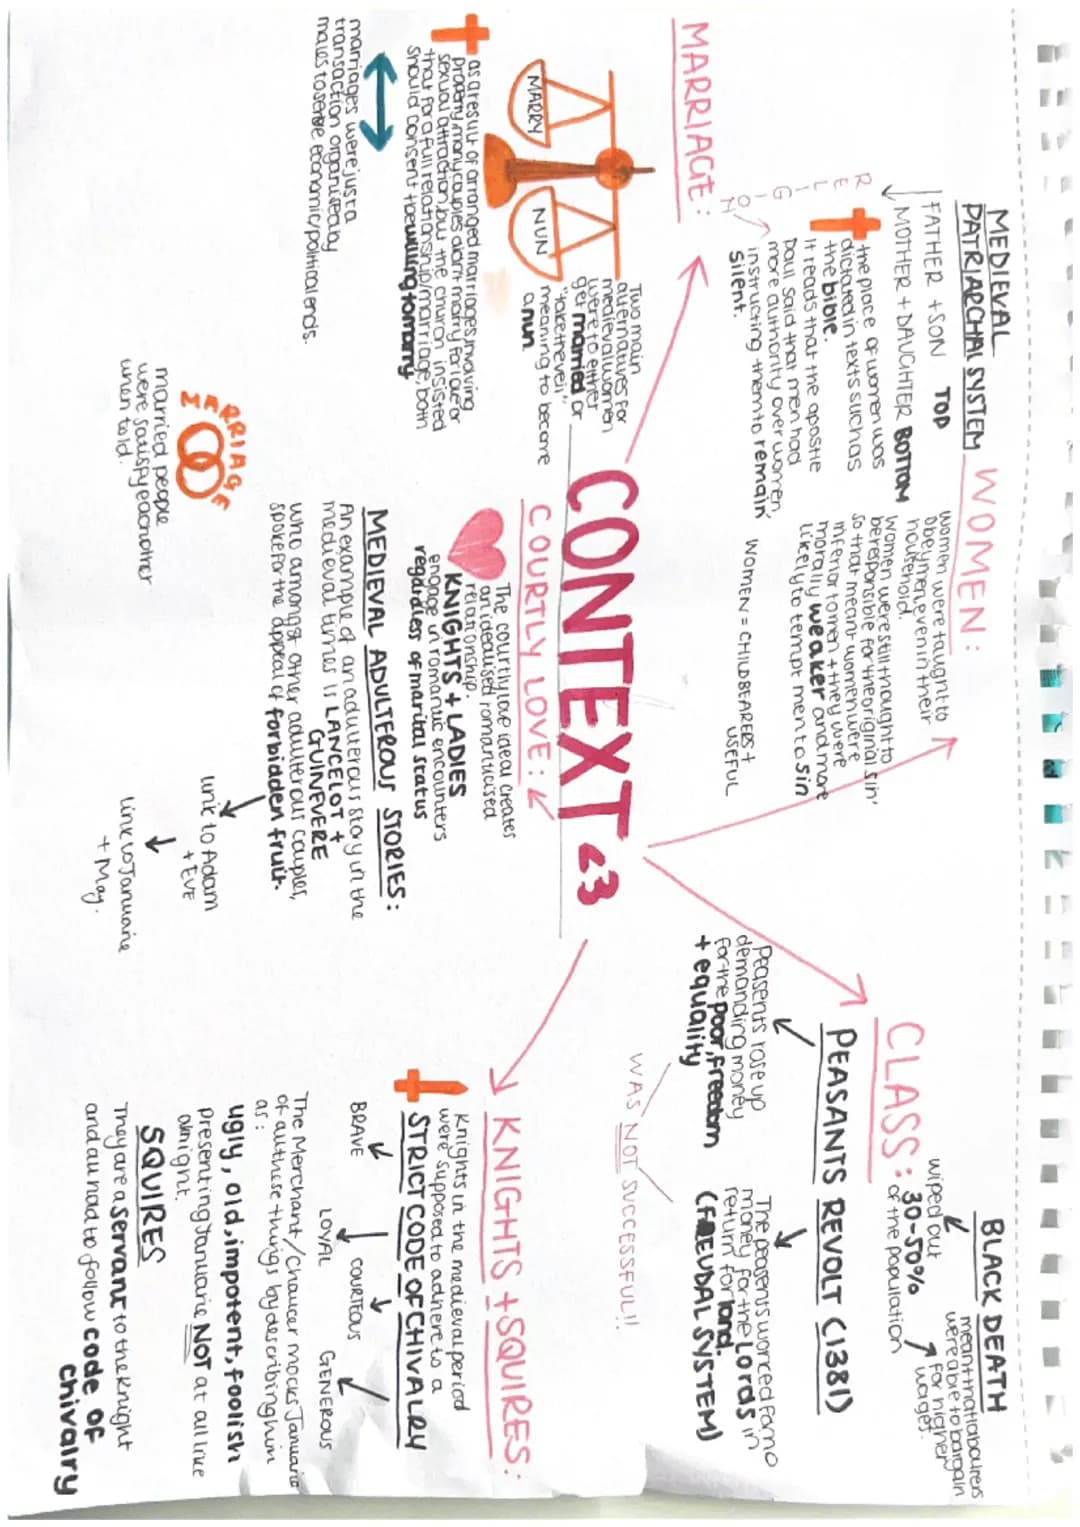 CONTEXT <3
MEDIEVAL
PATRIARCHAL SYSTEM
FATHER + SON TOP
MOTHER + DAUGHTER BOTTOM
RELIGION
the place of women was
dictated in texts such as
the bible.
It reads that the apostle
paul said that men had
more authority over women,
instructing them to remain
silent.
WOMEN:
women were taught to
obey men, even in their
household.
Women were still thought to
be responsible for the 'original sin'
so that meant women were
inferior to men + they were
morally weaker and more
likely to tempt men to sin
WOMEN = CHILDBEARERS +
USEFUL
CLASS:
BLACK DEATH
wiped out
30-50%
of the population
meant that labourers
were able to bargain
for higher
wages.
PEASANTS REVOLT (1381)
Peasents rose up
demanding money
for the poor, freedom
+ equality
The peasents worked for no
money for the Lords in
return for land.
(FREUDAL SYSTEM)
WAS NOT SUCCESSFUL!!
MARRIAGE:
MARRY
NUN
Two main
alternatives for
medieval women
were to either
get married or
"take the veil"
meaning to become
a nun.
as a result of arranged marriages, involving
property, many couples didn't marry for love or
sexual attraction, but the church insisted
that for a full relationship/marriage, both
should consent + be willing to marry
marriages were just a
transaction organised by
males to serve economic/political ends.
MARRIAGE
married people
were satisfy each other
when told.
COURTLY LOVE:
The courtly love ideal creates
an idealised romanticised
relationship.
KNIGHTS + LADIES
engage in romantic encounters
regardless of marital status
MEDIEVAL ADULTEROUS STORIES:
An example of an adulterous story in the
medieval times is LANCELOT +
GUINEVERE
who amongst other adulterous couples,
spoke for the appeal of forbidden fruit.
link to Adam
+ EVE
Link to Januarie
+ May.
KNIGHTS + SQUIRES:
Knights in the medieval period
were supposed to adhere to a
STRICT CODE OF CHIVALRY
BRAVE
LOYAL
COURTEOUS
GENEROUS
The Merchant/Chaucer mocks Januarie
of all these things by describing him
as:
ugly, old, impotent, foolish
presenting Januarie NOT at all like
a knight.
SQUIRES
They are a servant to the knight
and all had to follow code OF
chivalry